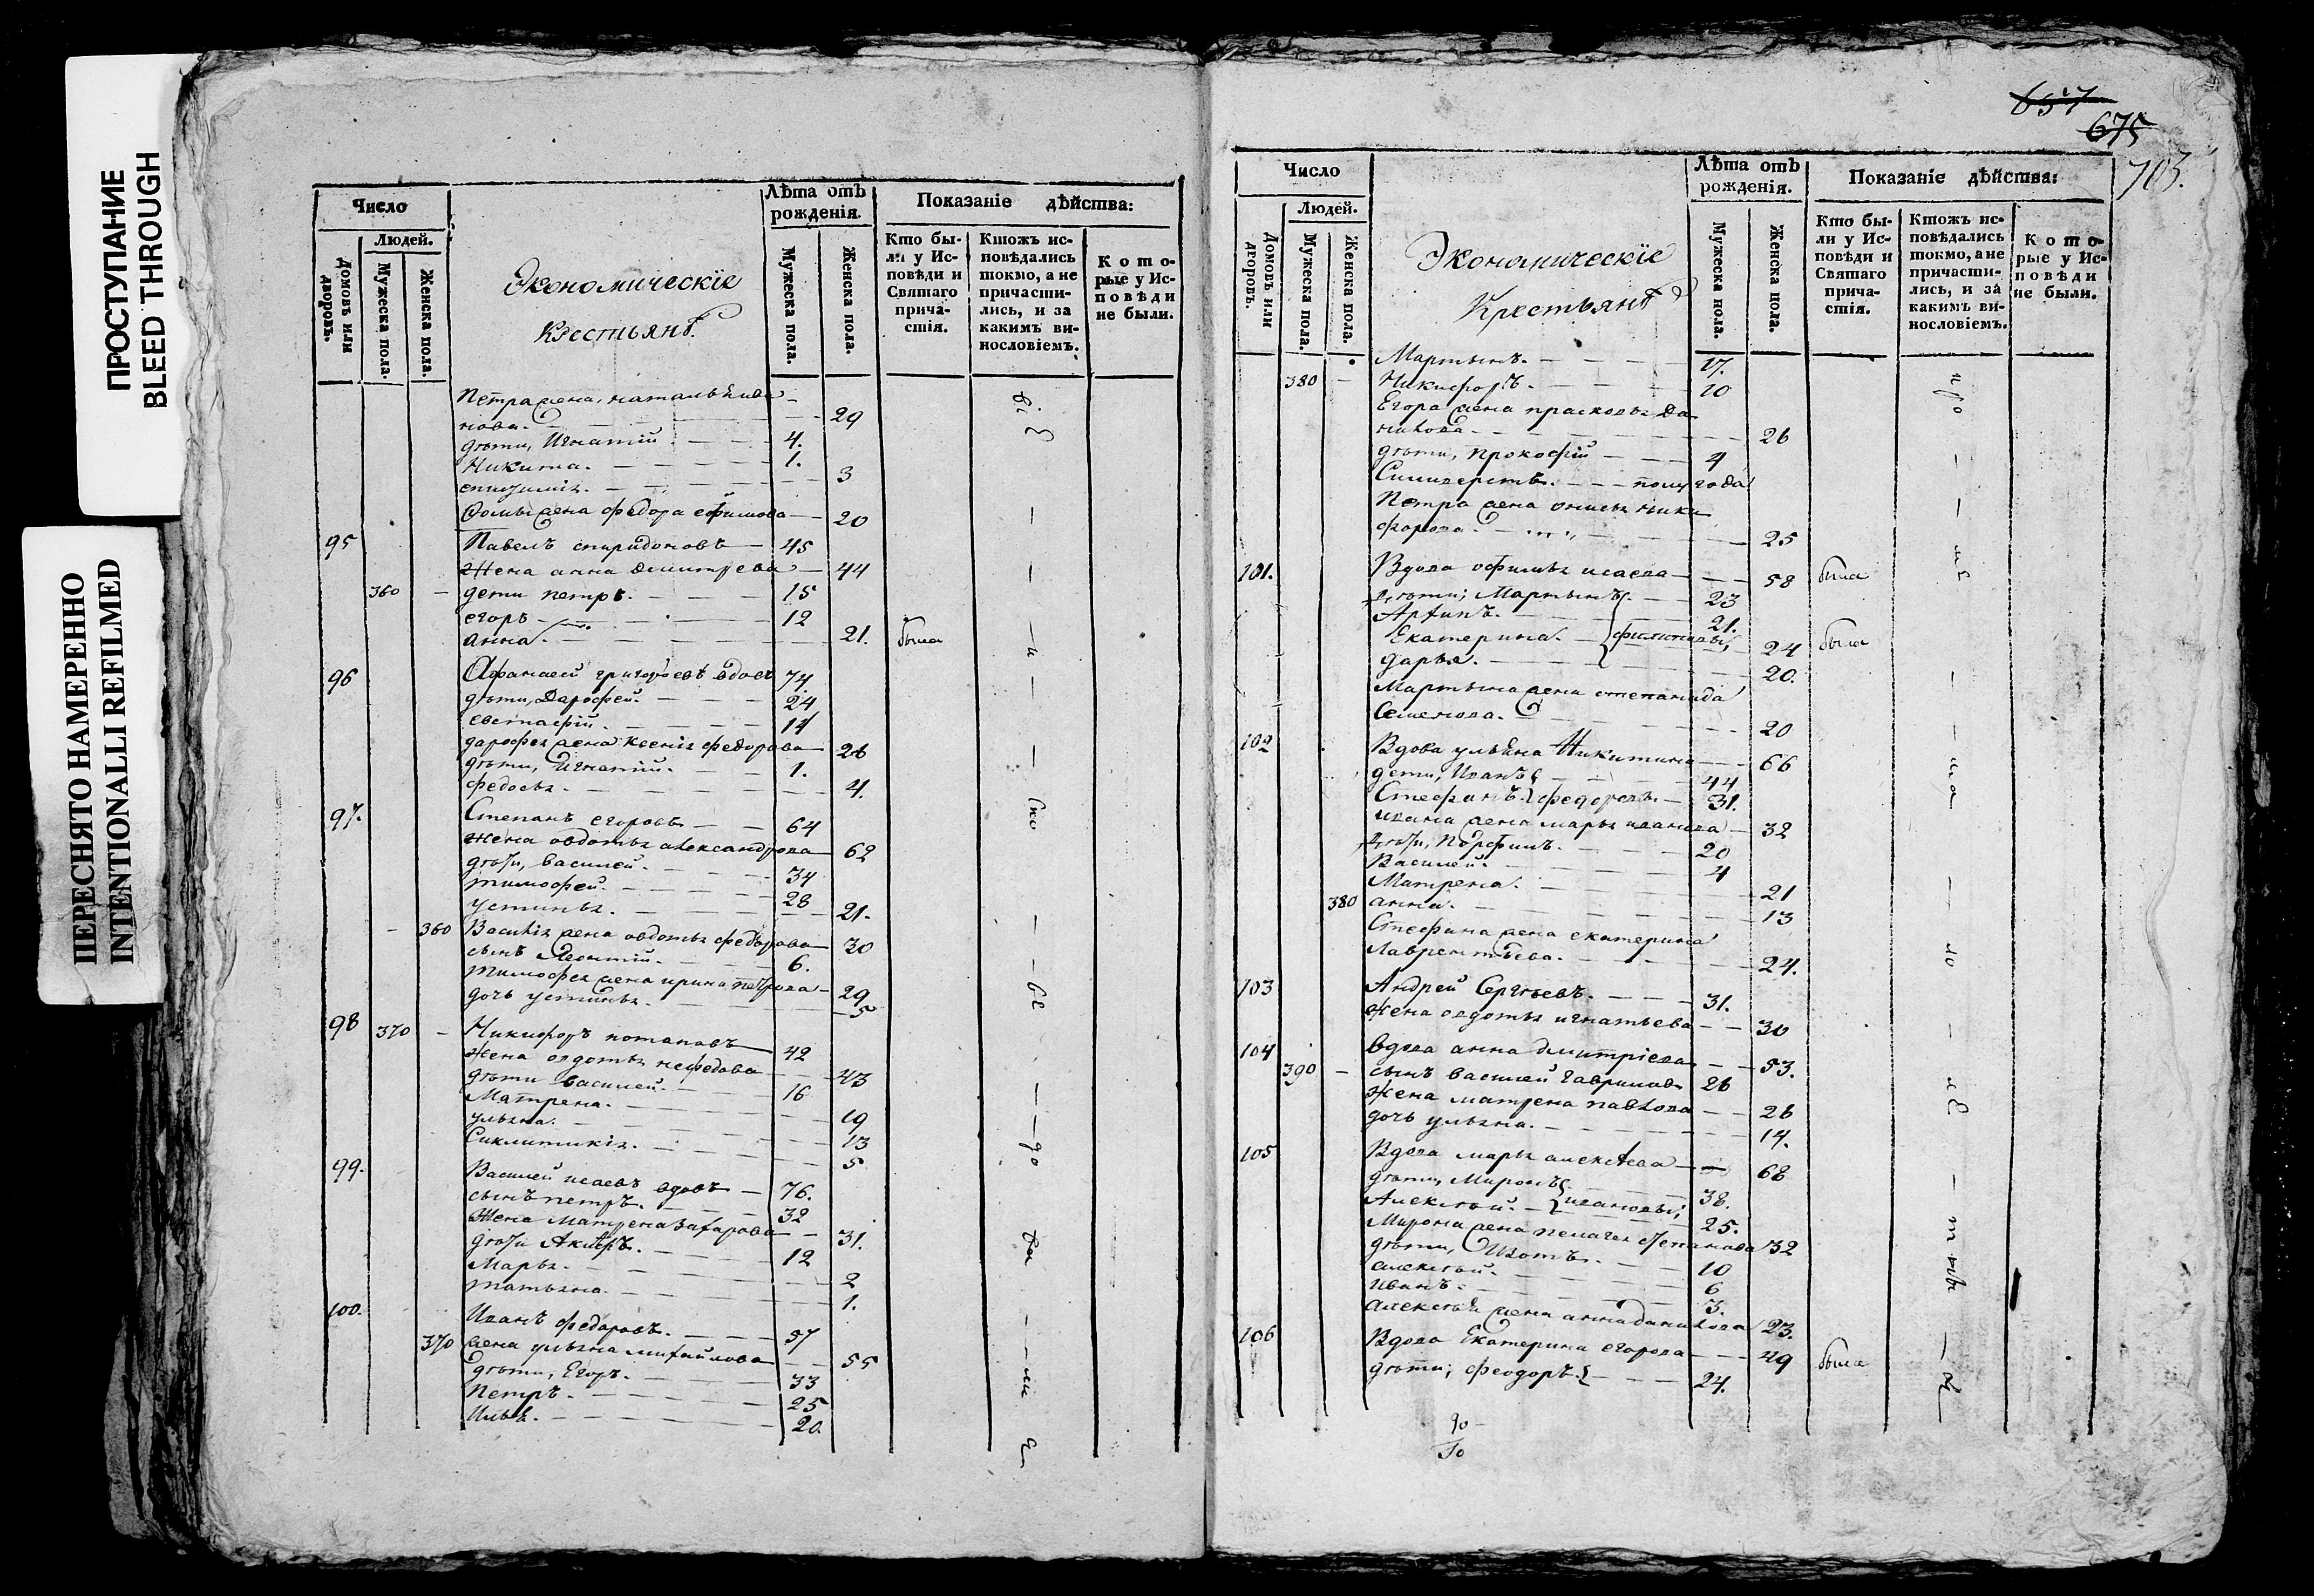 ПРОСТУПАНИЕ
BLEED THROUGH
ПЕРЕСНЯТО НАМЕРЕННО
INTENTIONALLI REFILMED
Число
Людей.
Домовъ или дворовъ.
Мужеска пола.
Женска пола.
Экономическіе
крестьянѣ
Лѣта отъ
рожденія.
Мужеска пола.
Женска пола.
Показаніе дѣйства:
Кто бы-
ли у Ис-
повѣди и
Святаго
прича-
стія.
Ктожъ ис-
повѣдались
токмо, а не
причасти-
лись, и за
какимъ ви-
нословіемъ.
Кото-
рые у Ис-
повѣди
не были.
Петра жена, наталья ива-
нова. 29
дѣти, Игнатій 4.
Никита. 1.
3
Фомы жена федора ефимова 20
95 Павелъ спиридоновъ 45
Жена анна дмитрева 44
360 дети петръ. 15
егоръ 12
анна. 21. была
96 Афанасей григорьевъ вдовъ 74
дѣти, Дарофей. 24
евстафій. 14
дарофея жена ксенія федорова 26
дѣти, Игнатій. 1.
федосья. 4.
97. Степанъ егоровъ 64
Жена овдотья александрова 62
дѣти, василей. 34
тимофей. 28
устинья. 21.
360 Василія жена овдотья федорова 30
сынъ Леонтій. 6.
тимофея жена ирина петрова 29
дочь устинья. 5
98 370 Никифоръ потаповъ 42
Жена овдотья нефедова 43
дѣти василей. 16
Матрена. 19
ульяна. 13
Сиклитикія. 5
99. Василей исаевъ вдовъ 76.
сынъ петръ. 32
Жена матрена захарова 31.
дѣти 12
Марья. 2
татьяна. 1.
100. Иванъ федоровъ. 57
370 жена ульяна михайлова 55
дѣти, Егоръ. 33
Петръ. 25
Илья. 20.
657
675
703.
Число
Людей.
Домовъ или дворовъ.
Мужеска пола.
Женска пола.
Экономическіе
Крестьянѣ
Лѣта отъ
рожденія.
Мужеска пола.
Женска пола.
Показаніе дѣйства:
Кто бы-
ли у Ис-
повѣди и
Святаго
прича-
стія.
Ктожъ ис-
повѣдались
токмо, а не
причасти-
лись, и за
какимъ ви-
нословіемъ.
Кото-
рые у Ис-
повѣди
не были.
Мартынъ. 17.
380 Никифоръ. 10
Егора жена прасковья да-
нилова 26
дѣти, прокофій 4
полугода
Петра жена онисья ники-
форова 25
101. Вдова офимья исаева 58 была
дѣти; Мартынъ 23
Архипъ. 21.
Екатерина. филиповы, 24 была
дарья. 20.
Мартына жена степанида
Семенова. 20
102 Вдова ульяна Никитина 66
дети, Иванъ 44
Стефанъ. федоровы 31.
ивана жена марья иванова 32
дѣти, Порфилъ. 20
Василей. 4
Матрена. 21
380 анна. 13
Стефана жена екатерина
Лаврентьева. 24.
103 Андрей Сергѣевъ. 31.
Жена овдотья игнатьева 30
104 вдова анна дмитріева 53.
390 сынъ василей гавриловъ 26
Жена матрена павлова 26
дочь ульяна. 14.
105 Вдова марья алексѣева 68
дѣти, Миронъ 38.
Алексѣй. ивановы; 25.
Мирона жена пелагея степанова 32
дѣти, Изотъ. 10
алексѣй. 6
иванъ. 3.
алексѣя жена анна данилова 23.
106 Вдова Екатерина егорова 49 была
дѣти; феодоръ 24.